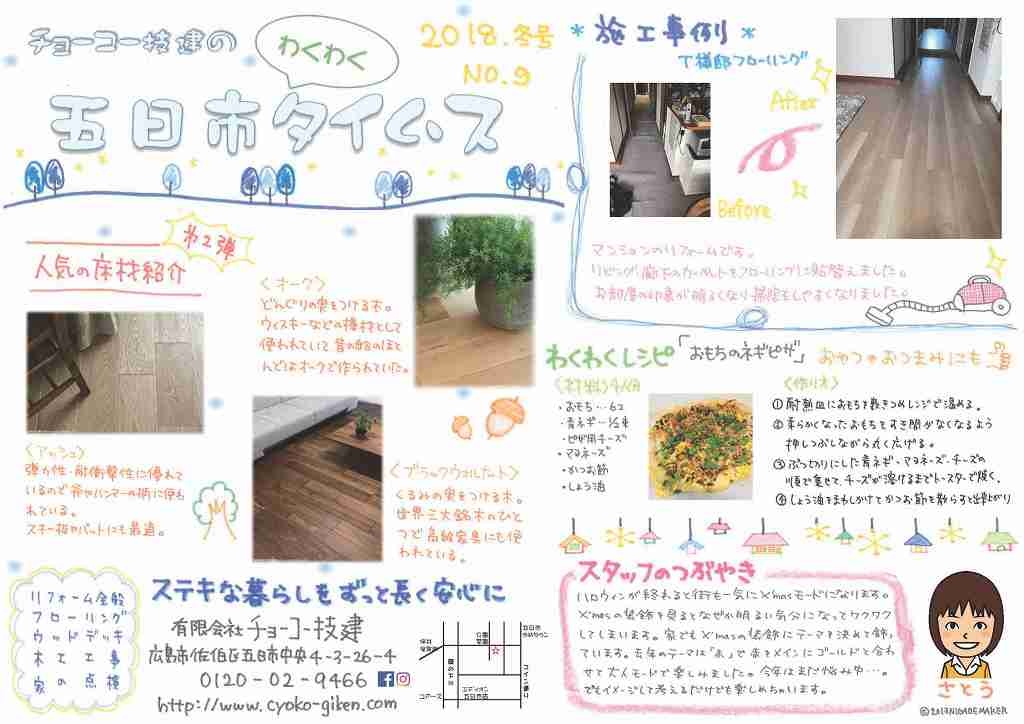 チョーコー技建の
わくわく
五日市タイムス
2018.冬号
NO.9
第2弾
人気の床材紹介
〈オーク〉
どんぐりの実をつける木。
ウィスキーなどの樽材として
使われていて昔の船のほと
んどはオークで作られていた。
〈アッシュ〉
弾力性・耐衝撃性に優れて
いるので斧やハンマーの柄に使わ
れている。
スキー板やバットにも最適。
〈ブラックウォルナット〉
くるみの実をつける木。
世界三大銘木のひと
つで高級家具にも使
われている。
*施工事例*
T様邸フローリング
After
Before
マンションのリフォームです。
リビング、廊下のカーペットをフローリングに貼替えました。
お部屋の印象が明るくなり掃除もしやすくなりました。
わくわくレシピ「おもちのネギピザ」おやつやおつまみにも
〈材料〉4人分
・おもち…6コ
・青ネギ…1/2束
・ピザ用チーズ
・マヨネーズ
・かつお節
・しょう油
〈作り方〉
①耐熱皿におもちを敷きつめレンジで温める。
②柔らかくなったおもちをすき間がなくなるよう
押しつぶしながら丸く広げる。
③ぶつ切りにした青ネギ・マヨネーズ・チーズの
順で乗せて、チーズが溶けるまでトースターで焼く。
④しょう油をまわしかけてかつお節を散らすと出来上がり
スタッフのつぶやき
ハロウィンが終わると街も一気にX'masモードになります。
X'masの装飾を見るとなぜか明るい気分になってワクワク
してしまいます。家でもX'masの装飾にテーマを決めて飾っ
ています。去年のテーマは「赤」で赤をメインにゴールドと合わ
せて大人モードで楽しみました。今年はまだ悩み中…。
でもイメージして考えるだけでも楽しめちゃいます。
さとう
©2017NIGAOEMAKER
リフォーム全般
フローリング
ウッドデッキ
木工工事
家の点検
ステキな暮らしをずっと長く安心に
有限会社チョーコー技建
広島市佐伯区五日市中央4-3-26-4
0120-02-9466
http://www.cyoko-giken.com